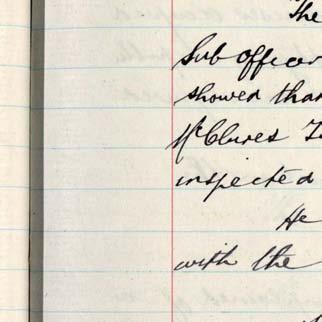 The
Sub Officer
showed than
McClures
inspected
He
with the